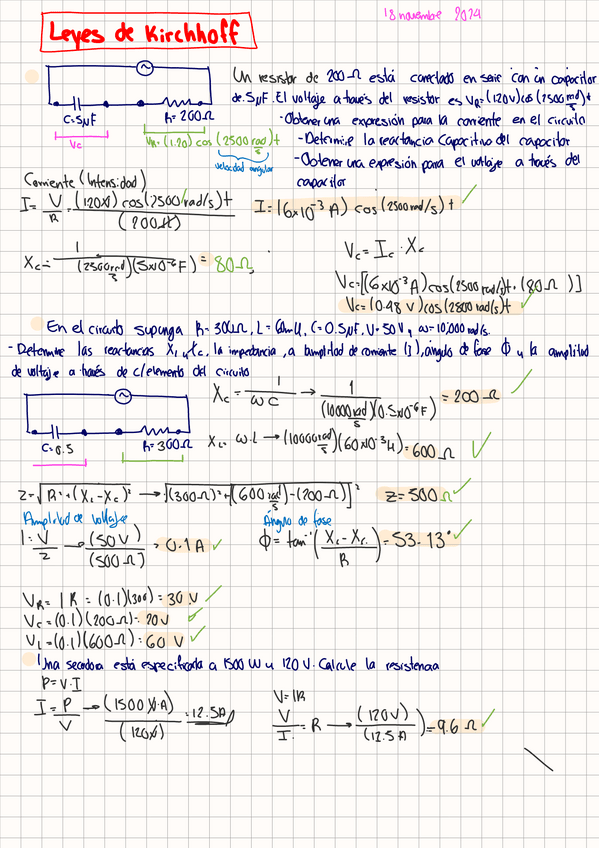 18 noviembre 2024
Leyes de Kirchhoff
Un resistor de 200Ω está conectado en serie con un capacitor
de 5μF. El voltaje a través del resistor es VR=(120V)cos(2500 rad/s)t
C=5μF
R=200Ω
- Obtener una expresión para la corriente en el circuito
Vc
VR=(1.20)cos(2500 rad/s)t
velocidad angular
- Determine la reactancia capacitiva del capacitor
- Obtener una expresión para el voltaje a través del
capacitor
Corriente (Intensidad)
I= V/R = (120V)cos(2500 rad/s)t / (200Ω)
I=(6x10⁻³A)cos(2500 rad/s)t
Xc= 1/(2500 rad/s)(5x10⁻⁶F) = 80Ω
Vc= Ic·Xc
Vc=[(6x10⁻³A)cos(2500 rad/s)t·(80Ω)]
Vc=(0.48 V)cos(2500 rad/s)t
En el circuito suponga R=300Ω, L=60mH, C=0.5μF, V=50V y ω=10,000 rad/s.
- Determine las reactancias XL y Xc, la impedancia, a amplitud de corriente (I), ángulo de fase Φ y la amplitud
de voltaje a través de c/elemento del circuito
Xc= 1/ωC → 1/(10000 rad/s)(0.5x10⁻⁶F) = 200Ω
C=0.5
R=300Ω
XL= ω·L → (10000 rad/s)(60x10⁻³H)= 600Ω
Z=√R²+(XL-Xc)² → √(300Ω)²+[(600 rad/s)-(200Ω)]² Z=500Ω
Amplitud de voltaje
Ángulo de fase
I= V/Z → (50V)/(500Ω) = 0.1A
Φ= tan⁻¹(XL-Xc/R)= 53.13°
VR= IR = (0.1)(300)= 30 V
Vc=(0.1)(200Ω)= 20V
VL=(0.1)(600Ω)= 60 V
Una secadora está especificada a 1500 W y 120 V. Calcule la resistencia
P=V·I
I= P/V → (1500 V·A)/(120V) = 12.5A
V=IR
V/I = R → (120V)/(12.5A) = 9.6Ω